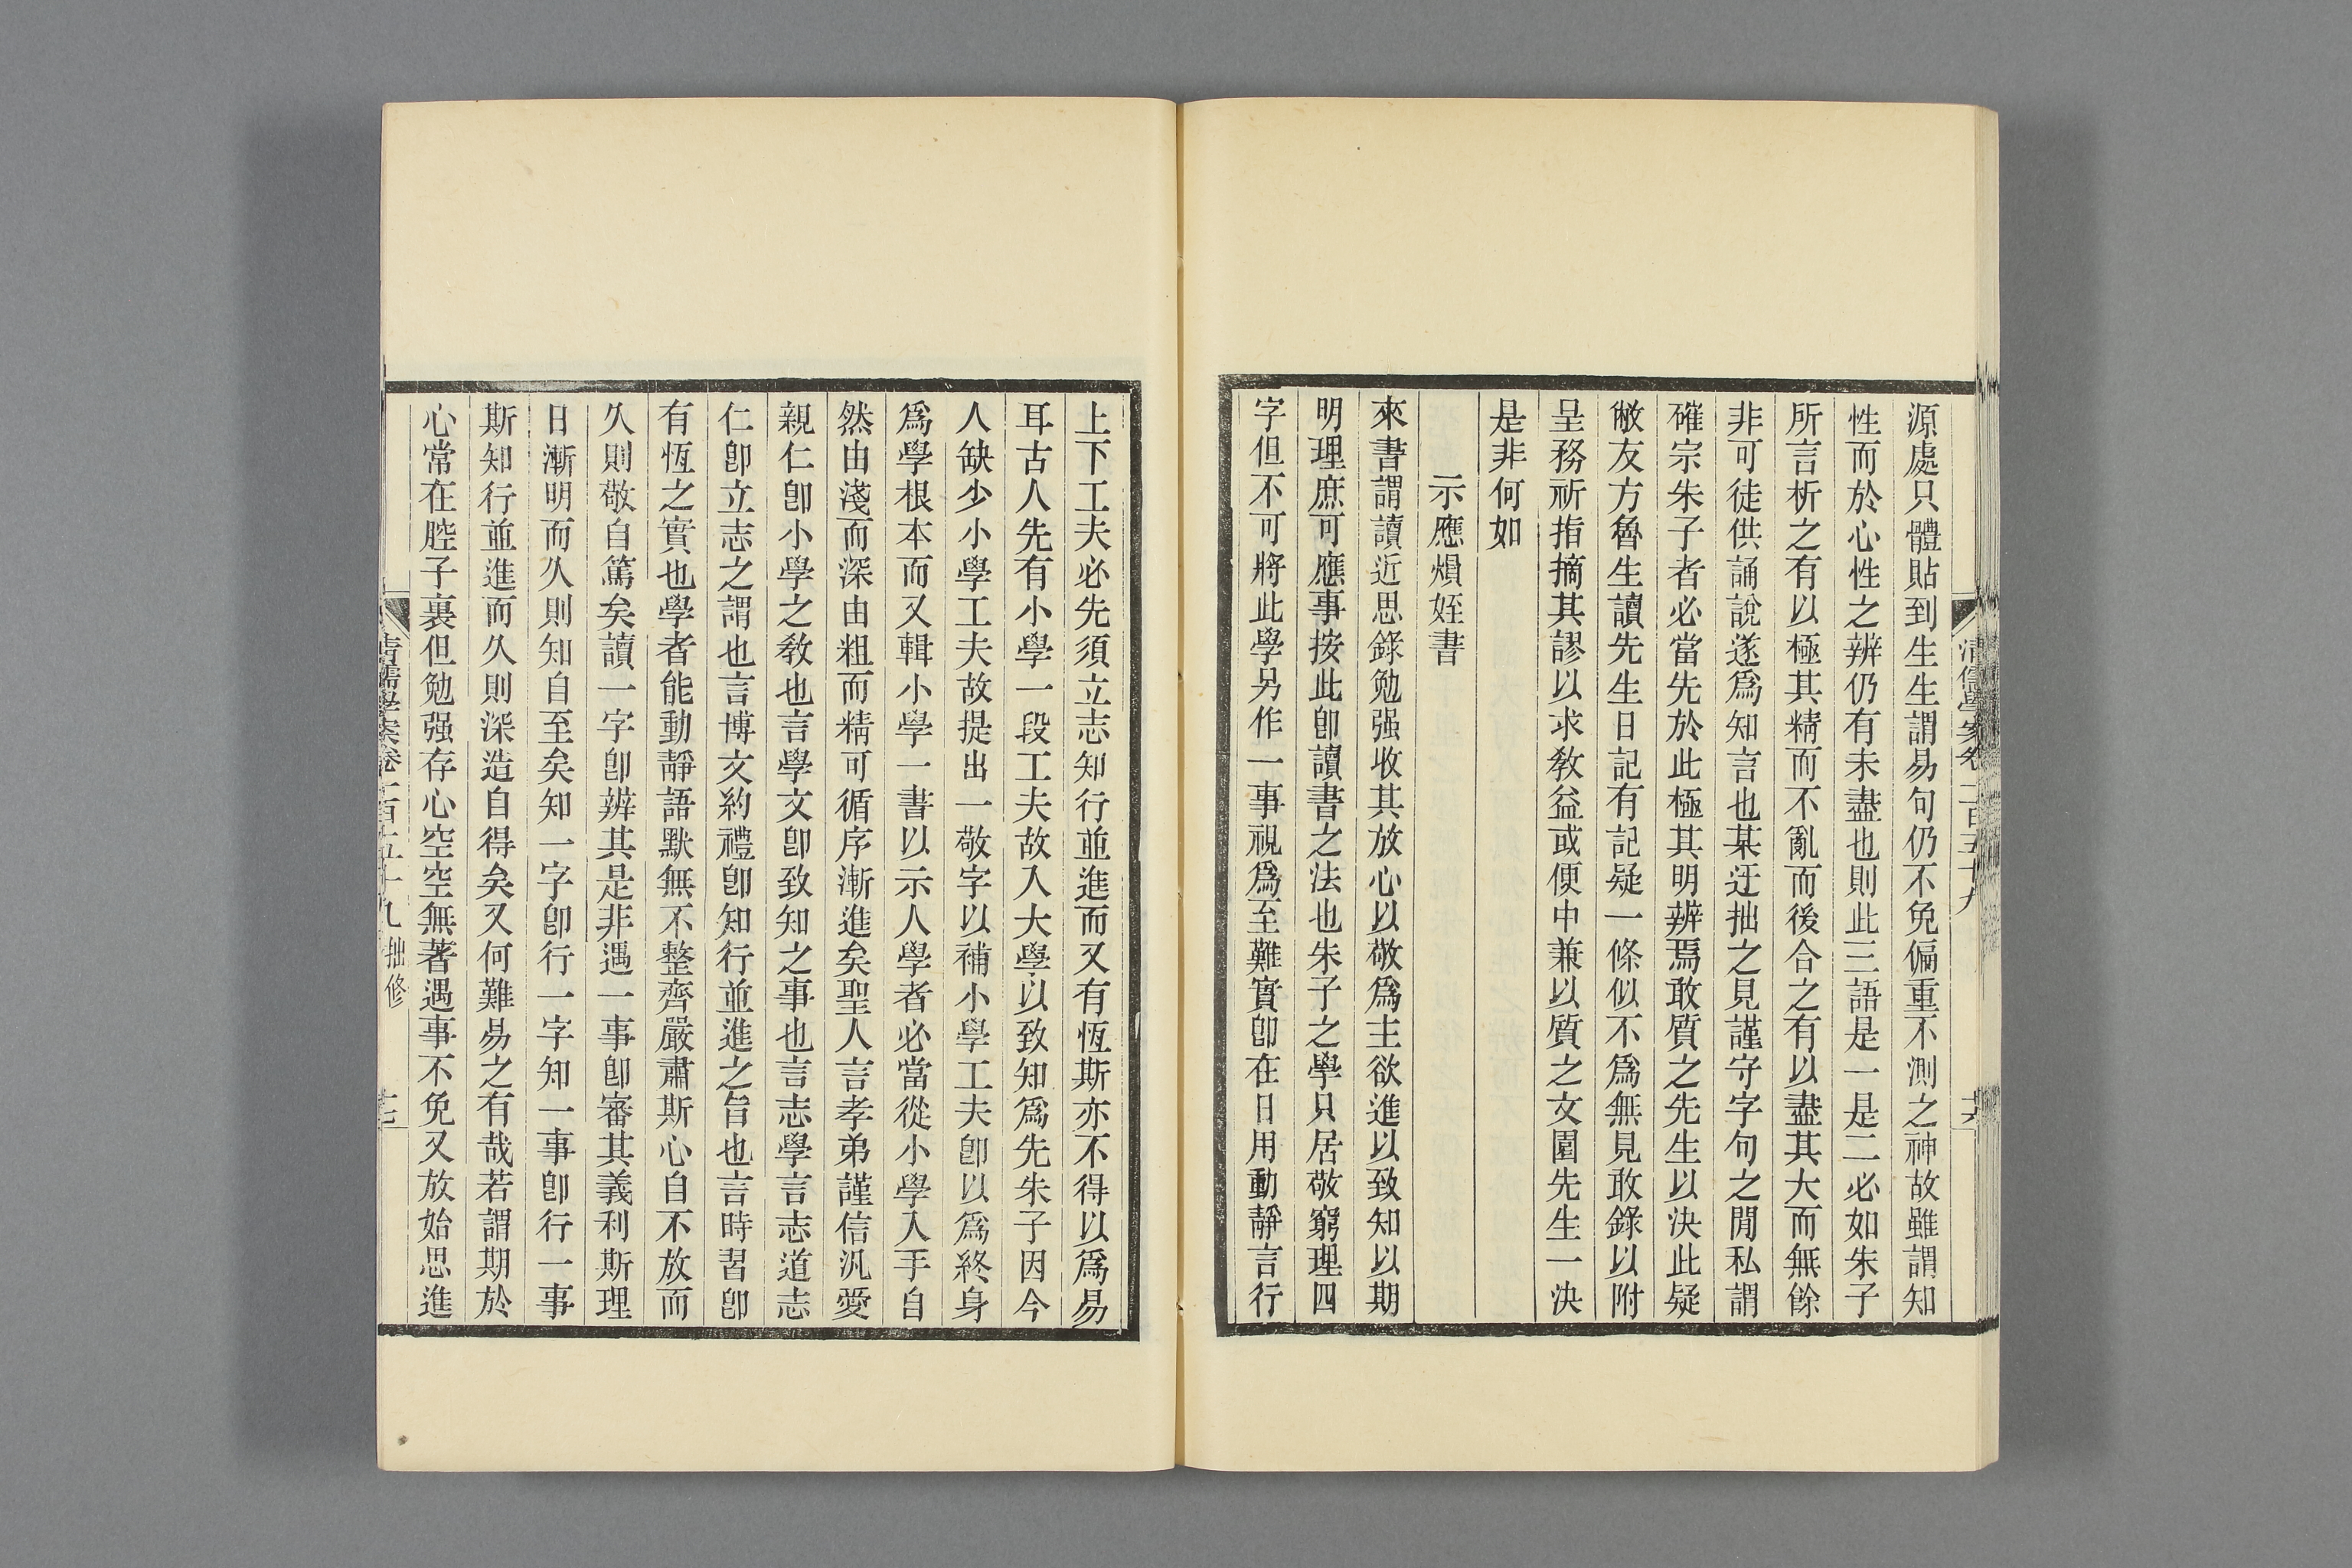 源處只體貼到生生謂易句仍不免偏重不測之神故雖謂知
性而於心性之辨仍有未盡也則此三語是一是二必如朱子
所言析之有以極其精而不亂而後合之有以盡其大而無餘
非可徒供誦說遂爲知言也某迂拙之見謹守字句之閒私謂
確宗朱子者必當先於此極其明辨焉敢質之先生以決此疑
敝友方魯生讀先生日記有記疑一條似不爲無見敢錄以附
呈務祈指摘其謬以求敎益或便中兼以質之文園先生一決
是非何如
示應熉姪書
來書謂讀近思錄勉强收其放心以敬爲主欲進以致知以期
明理庶可應事按此卽讀書之法也朱子之學只居敬窮理四
字但不可將此學另作一事視爲至難實卽在日用動靜言行
清儒學案卷一百五十九
上下工夫必先須立志知行並進而又有恆斯亦不得以爲易
耳古人先有小學一段工夫故入大學以致知爲先朱子因今
人缺少小學工夫故提出一敬字以補小學工夫卽以爲終身
爲學根本而又輯小學一書以示人學者必當從小學入手自
然由淺而深由粗而精可循序漸進矣聖人言孝弟謹信汎愛
親仁卽小學之敎也言學文卽致知之事也言志學言志道志
仁卽立志之謂也言博文約禮卽知行並進之旨也言時習卽
有恆之實也學者能動靜語默無不整齊嚴肅斯心自不放而
久則敬自篤矣讀一字卽辨其是非遇一事卽審其義利斯理
日漸明而久則知自至矣知一字卽行一字知一事卽行一事
斯知行並進而久則深造自得矣又何難易之有哉若謂期於
心常在腔子裏但勉强存心空空無著遇事不免又放始思進
清儒學案卷一百五十九 拙修 十七